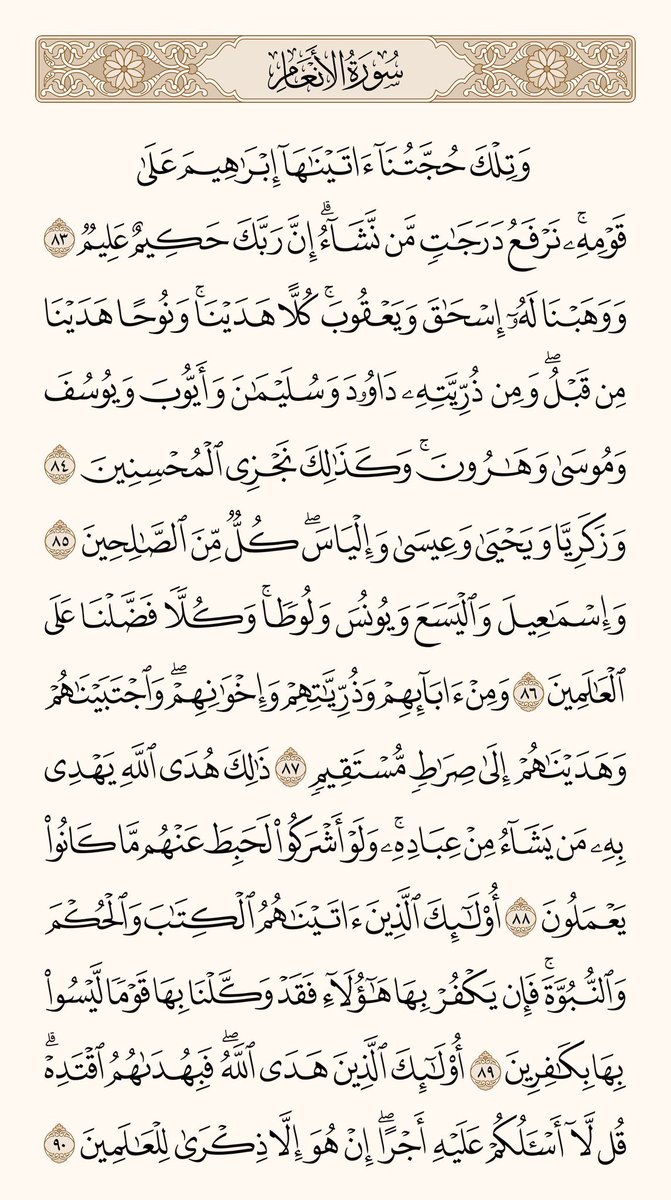 سُورَةُ الأَنْعَامِ
وَتِلْكَ حُجَّتُنَآ ءَاتَيْنَٰهَآ إِبْرَٰهِيمَ عَلَىٰ
قَوْمِهِۦۚ نَرْفَعُ دَرَجَٰتٍ مَّن نَّشَآءُۗ إِنَّ رَبَّكَ حَكِيمٌ عَلِيمٌ ٨٣
وَوَهَبْنَا لَهُۥٓ إِسْحَٰقَ وَيَعْقُوبَۚ كُلًّا هَدَيْنَاۚ وَنُوحًا هَدَيْنَا
مِن قَبْلُۖ وَمِن ذُرِّيَّتِهِۦ دَاوُۥدَ وَسُلَيْمَٰنَ وَأَيُّوبَ وَيُوسُفَ
وَمُوسَىٰ وَهَٰرُونَۚ وَكَذَٰلِكَ نَجْزِى ٱلْمُحْسِنِينَ ٨٤
وَزَكَرِيَّا وَيَحْيَىٰ وَعِيسَىٰ وَإِلْيَاسَۖ كُلٌّ مِّنَ ٱلصَّٰلِحِينَ ٨٥
وَإِسْمَٰعِيلَ وَٱلْيَسَعَ وَيُونُسَ وَلُوطًاۚ وَكُلًّا فَضَّلْنَا عَلَى
ٱلْعَٰلَمِينَ ٨٦ وَمِنْ ءَابَآئِهِمْ وَذُرِّيَّٰتِهِمْ وَإِخْوَٰنِهِمْۖ وَٱجْتَبَيْنَٰهُمْ
وَهَدَيْنَٰهُمْ إِلَىٰ صِرَٰطٍ مُّسْتَقِيمٍ ٨٧ ذَٰلِكَ هُدَى ٱللَّهِ يَهْدِى
بِهِۦ مَن يَشَآءُ مِنْ عِبَادِهِۦۚ وَلَوْ أَشْرَكُوا۟ لَحَبِطَ عَنْهُم مَّا كَانُوا۟
يَعْمَلُونَ ٨٨ أُو۟لَٰٓئِكَ ٱلَّذِينَ ءَاتَيْنَٰهُمُ ٱلْكِتَٰبَ وَٱلْحُكْمَ
وَٱلنُّبُوَّةَۚ فَإِن يَكْفُرْ بِهَا هَٰٓؤُلَآءِ فَقَدْ وَكَّلْنَا بِهَا قَوْمًا لَّيْسُوا۟
بِهَا بِكَٰفِرِينَ ٨٩ أُو۟لَٰٓئِكَ ٱلَّذِينَ هَدَى ٱللَّهُۖ فَبِهُدَىٰهُمُ ٱقْتَدِهْۗ
قُل لَّآ أَسْـَٔلُكُمْ عَلَيْهِ أَجْرًاۖ إِنْ هُوَ إِلَّا ذِكْرَىٰ لِلْعَٰلَمِينَ ٩٠